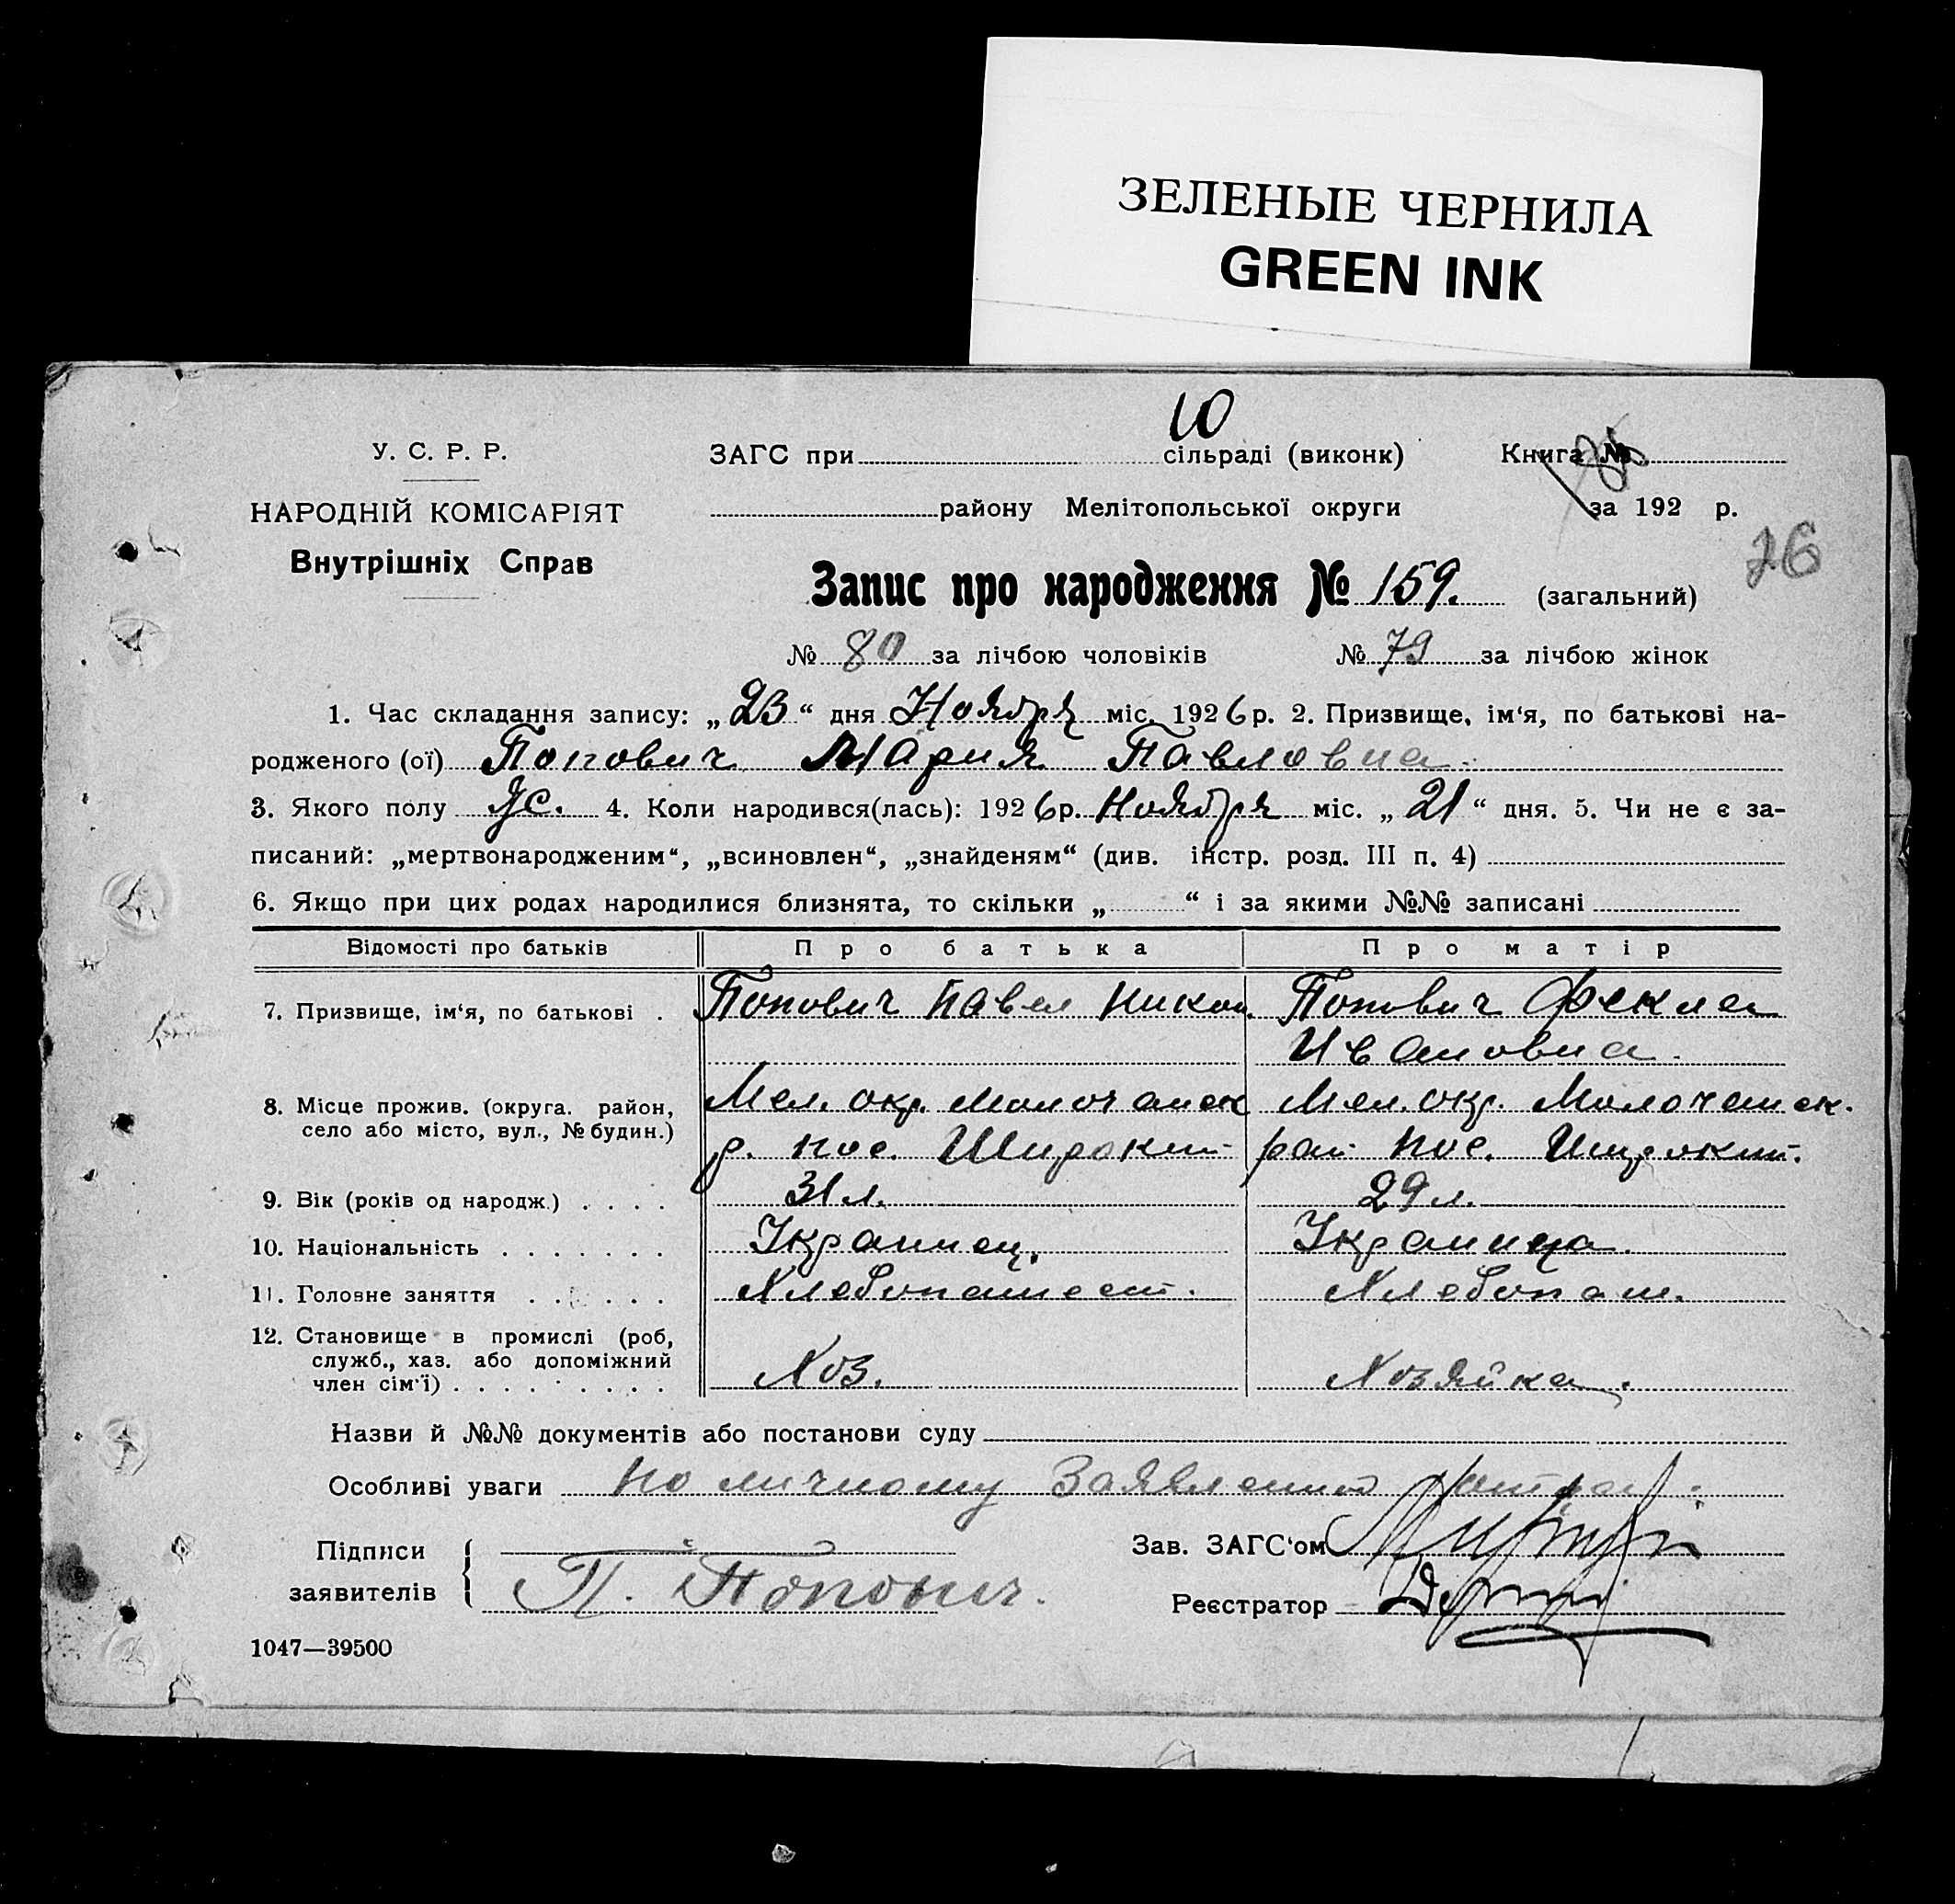 ЗЕЛЕНЫЕ ЧЕРНИЛА
GREEN INK
10
У. С. Р. Р.
НАРОДНІЙ КОМІСАРІЯТ
Внутрішніх Справ
ЗАГС при сільраді (виконк)
Книга №
району Мелітопольської округи
за 192 р.
26
Запис про народження № 159. (загальний)
№ 80 за лічбою чоловіків № 79 за лічбою жінок
1. Час складання запису: „23“ дня Ноября міс. 1926 р. 2. Призвище, ім‘я, по батькові на-
родженого (ої) Попович Мария Павловна
3. Якого полу Жс. 4. Коли народився(лась): 1926 р. Ноября міс. „21“ дня. 5. Чи не є за-
писаний: „мертвонародженим“, „всиновлен“, „знайденям“ (див. інстр. розд. III п. 4)
6. Якщо при цих родах народилися близнята, то скільки „ “ і за якими №№ записані
Відомості про батьків Про батька Про матір
7. Призвище, ім‘я, по батькові . Попович Павел Никол. Попович Фекла
Ивановна.
8. Місце прожив. (округа. район, Мел. окр. Молочанск Мел. окр. Молочанск.
село або місто, вул., № будин.) р. пос. Широкий рай. пос. Широкий.
9. Вік (років од народж.) . . . . 31 л. 29 л.
10. Національність . . . . . . . Украинец. Украинца.
11. Головне заняття . . . . . . Хлебопашест. Хлебопаш.
12. Становище в промислі (роб,
служб., хаз. або допоміжний
член сім‘ї) . . . . . . . . . Хоз. Хозяйка.
Назви й №№ документів або постанови суду
Особливі уваги по личному Заявлению
Підписи
заявителів
П. Попович.
Зав. ЗАГС‘ом
Реєстратор
1047—39500